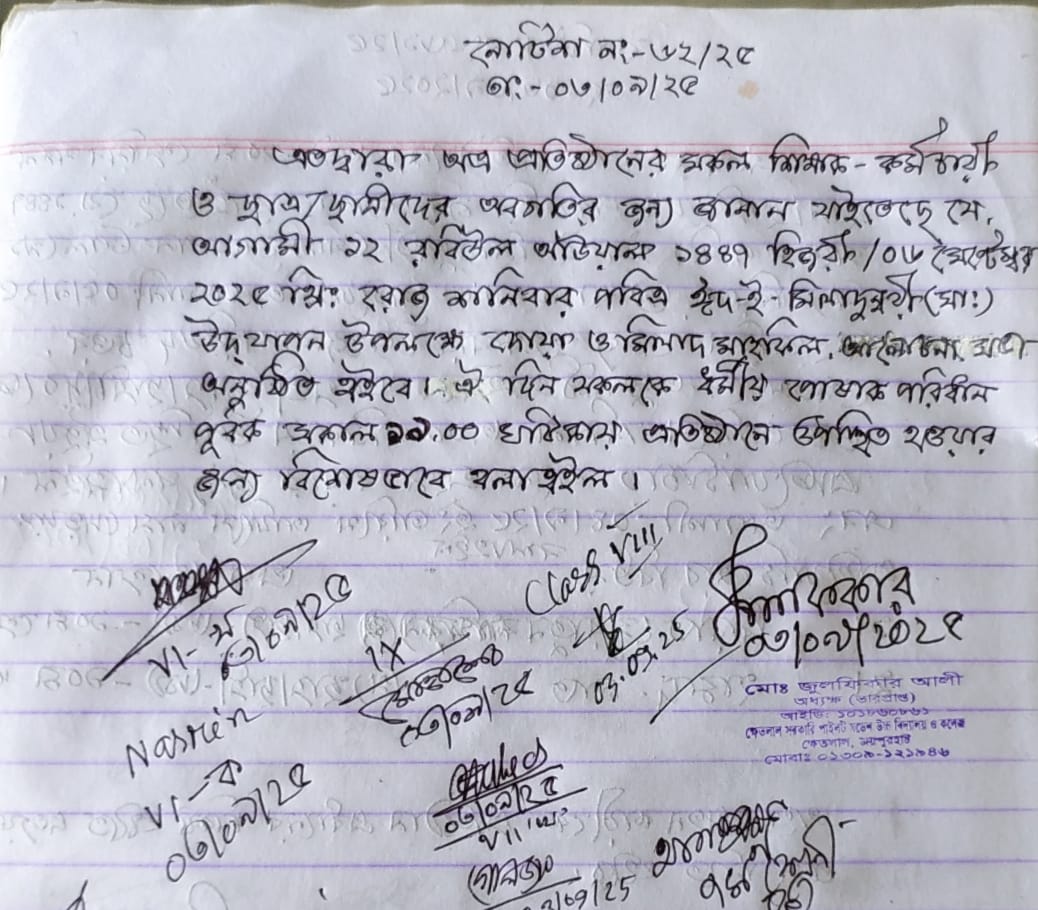 নোটিশ নং-৬২/২৫
তাং- ০৩/০৯/২৫
এতদ্বারা অত্র প্রতিষ্ঠানের সকল শিক্ষক - কর্মচারী
ও ছাত্র/ছাত্রীদের অবগতির জন্য জানান যাইতেছে যে,
আগামী ১২ রবিউল আউয়াল ১৪৪৭ হিজরী /০৬ সেপ্টেম্বর
২০২৫ খ্রিঃ রোজ শনিবার পবিত্র ঈদ-ই-মিলাদুন্নবী (সাঃ)
উদ্‌যাপন উপলক্ষে দোয়া ও মিলাদ মাহফিল, আলোচনা সভা
অনুষ্ঠিত হইবে। ঐ দিন সকলকে ধর্মীয় পোষাক পরিধান
পূর্বক সকাল ১১.০০ ঘটিকায় প্রতিষ্ঠানে উপস্থিত হওয়ার
জন্য বিশেষভাবে বলা হইল।
Class VIII
03.09.25
VI-খ
০৩/০৯/২৫
IX
০৩/০৯/২৫
০৩/০৯/২০২৫
মোঃ জুলফিকার আলী
অধ্যক্ষ (ভারপ্রাপ্ত)
ক্ষেতলাল সরকারি পাইলট মডেল উচ্চ বিদ্যালয় ও কলেজ
ক্ষেতলাল, জয়পুরহাট
Nasrein
VI-ক
০৩/০৯/২৫
০৩/০৯/২৫
VII
/09/25